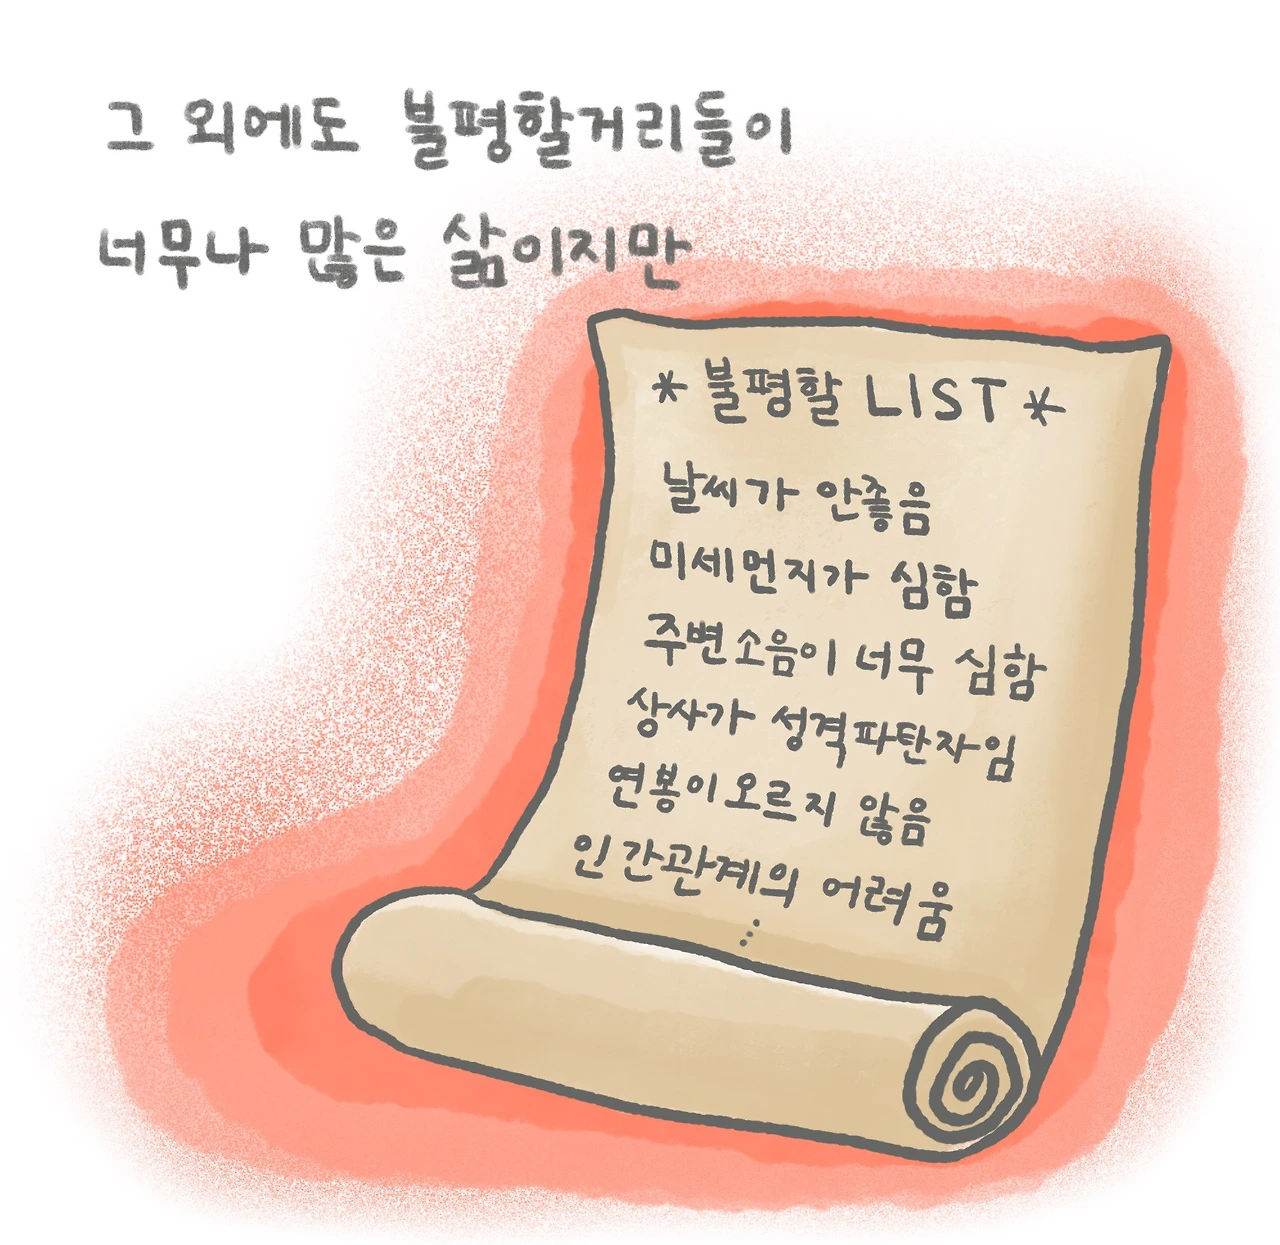 그 외에도 불평할거리들이
너무나 많은 삶이지만
* 불평할 LIST *
날씨가 안좋음
미세먼지가 심함
주변소음이 너무 심함
상사가 성격파탄자임
연봉이오르지 않음
인간관계의 어려움
⋮